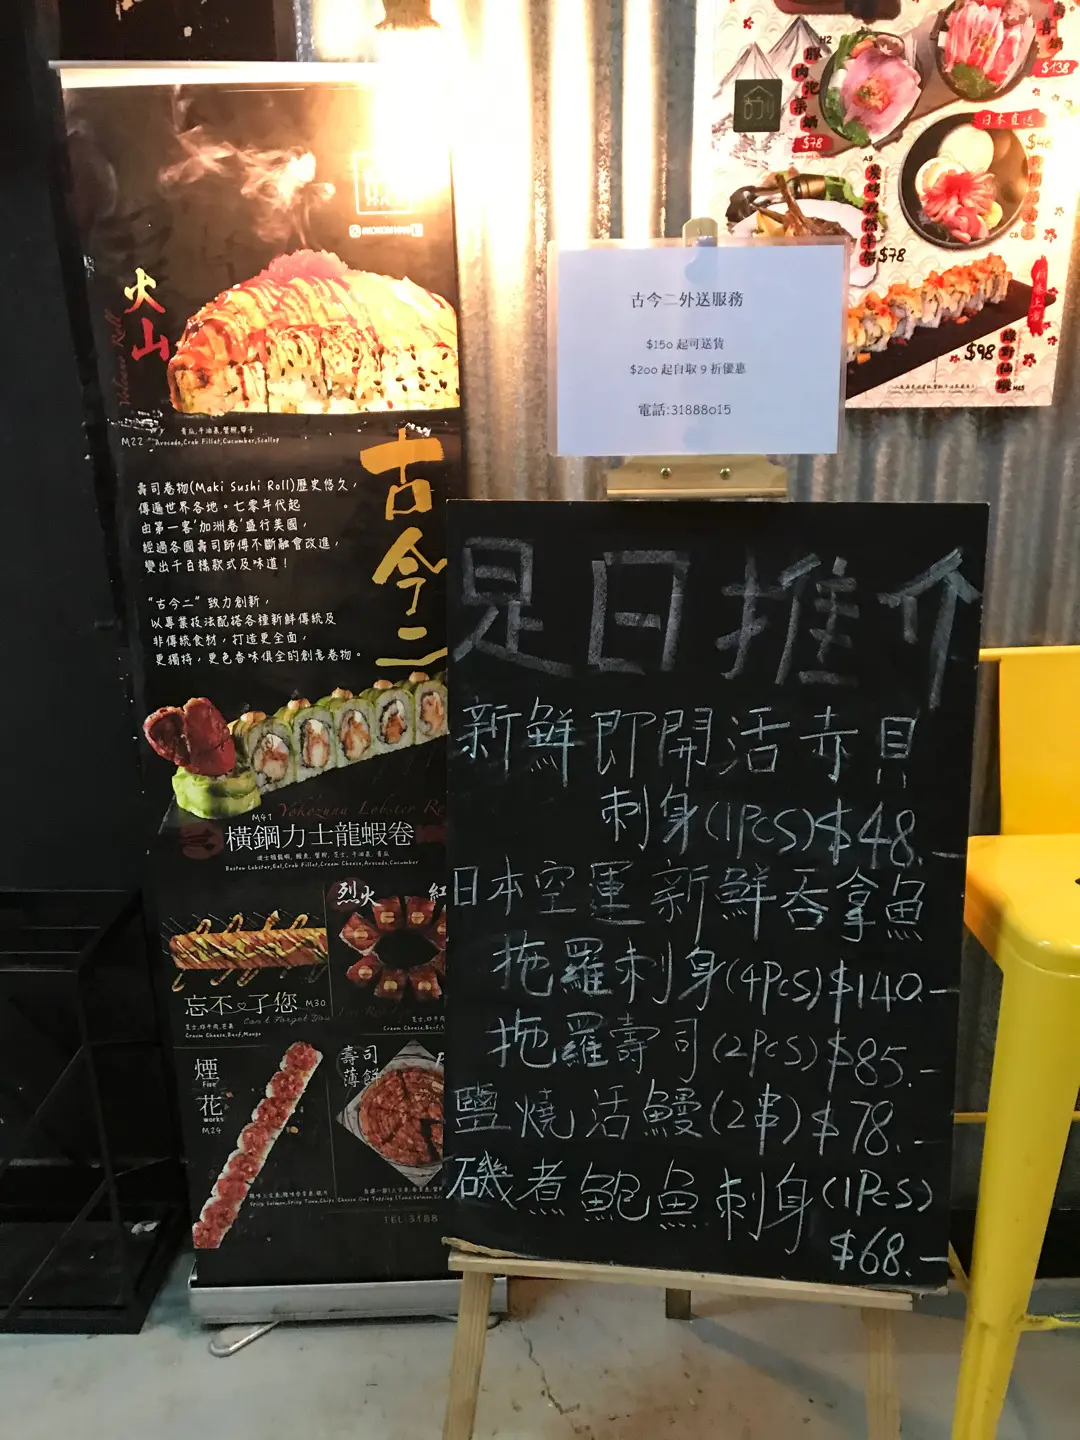 火山
Volcano Roll
M22
青瓜,牛油果,蟹柳,帶子
Avocado,Crab Fillet,Cucumber,Scallop
古今二
壽司卷物(Maki Sushi Roll)歷史悠久，
傳遍世界各地。七零年代起
由第一客'加洲卷'盛行美國，
經過各國壽司師傅不斷融會改進，
變出千百樣款式及味道！
"古今二" 致力創新，
以專業技法配搭各種新鮮傳統及
非傳統食材，打造更全面，
更獨特，更色香味俱全的創意卷物。
M41
橫鋼力士龍蝦卷
Boston Lobster,Eel,Crab Fillet,Cream Cheese,Avocado,Cucumber
忘不了您 M30
Can't Forget You
芝士,炸牛肉,芒果
Cream Cheese,Beef,Mango
烈火
紅
煙花
Fire works
M24
壽司薄餅
TEL 3188
古今二外送服務
$150 起可送貨
$200 起自取 9 折優惠
電話:31888015
H2
豚肉泡菜鍋
$78
$138
日本直送
A9
$78
C8
$98
M65
是日推介
新鮮即開活赤貝
刺身(1PCS)$48.-
日本空運新鮮吞拿魚
拖羅刺身(4PCS)$140.-
拖羅壽司(2PCS)$85.-
鹽燒活鰻(2串)$78.-
磯煮鮑魚刺身(1PCS)
$68.-